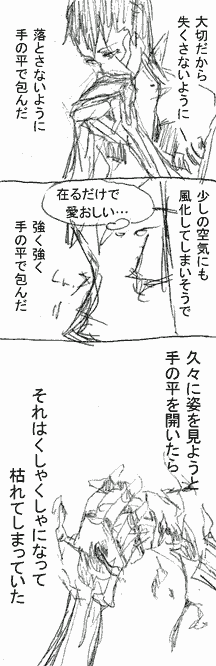 大切だから
失くさないように
落とさないように
手の平で包んだ
少しの空気にも
風化してしまいそうで
在るだけで
愛おしい…
強く強く
手の平で包んだ
久々に姿を見ようと
手の平を開いたら
それはくしゃくしゃになって
枯れてしまっていた